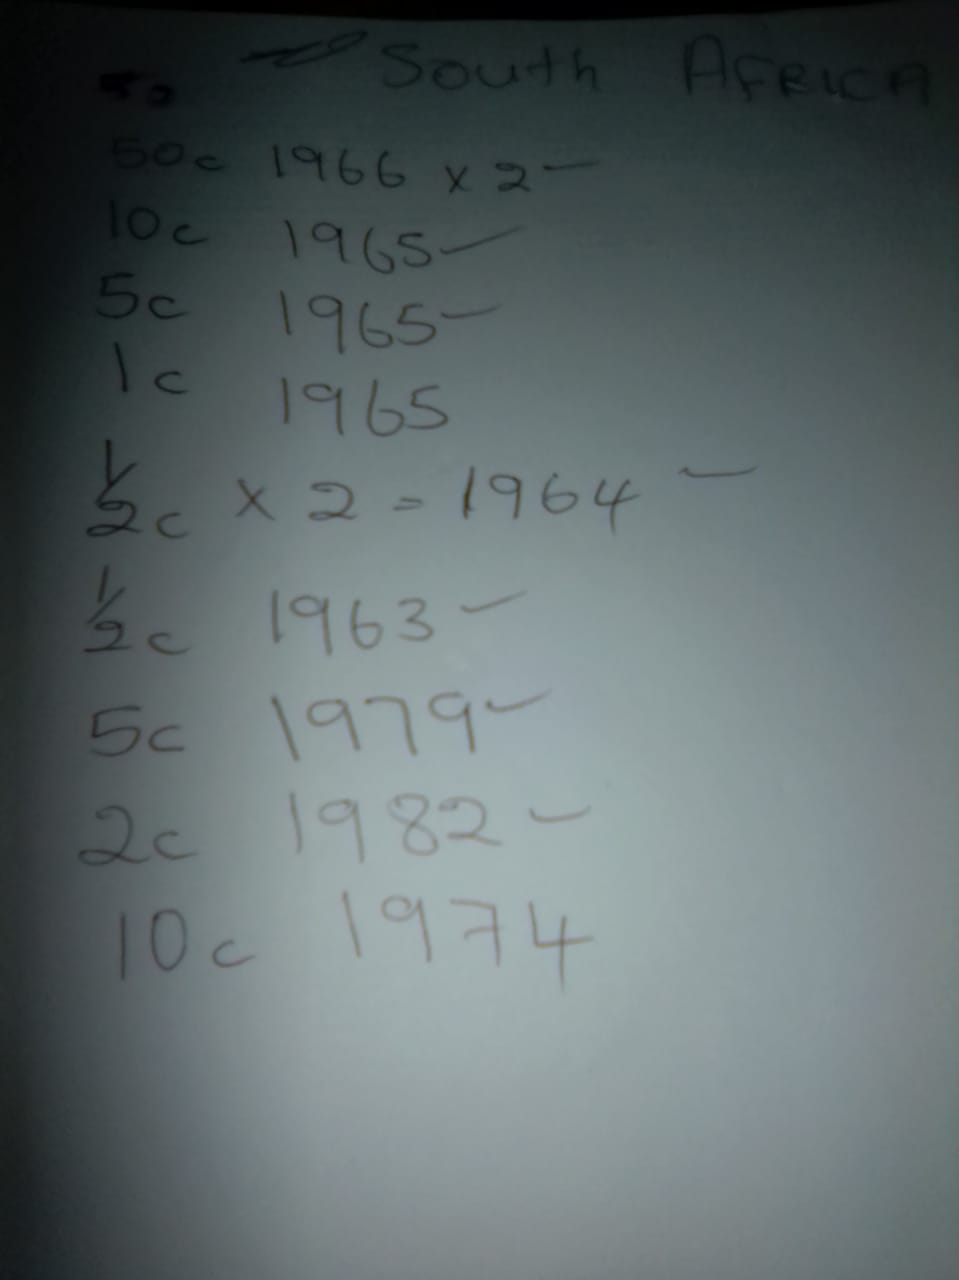 South AFRICA
50c 1966 x 2 -
10c 1965 -
5c 1965 -
1c 1965
1/2c x 2 = 1964 -
1/2c 1963 -
5c 1979 -
2c 1982 -
10c 1974